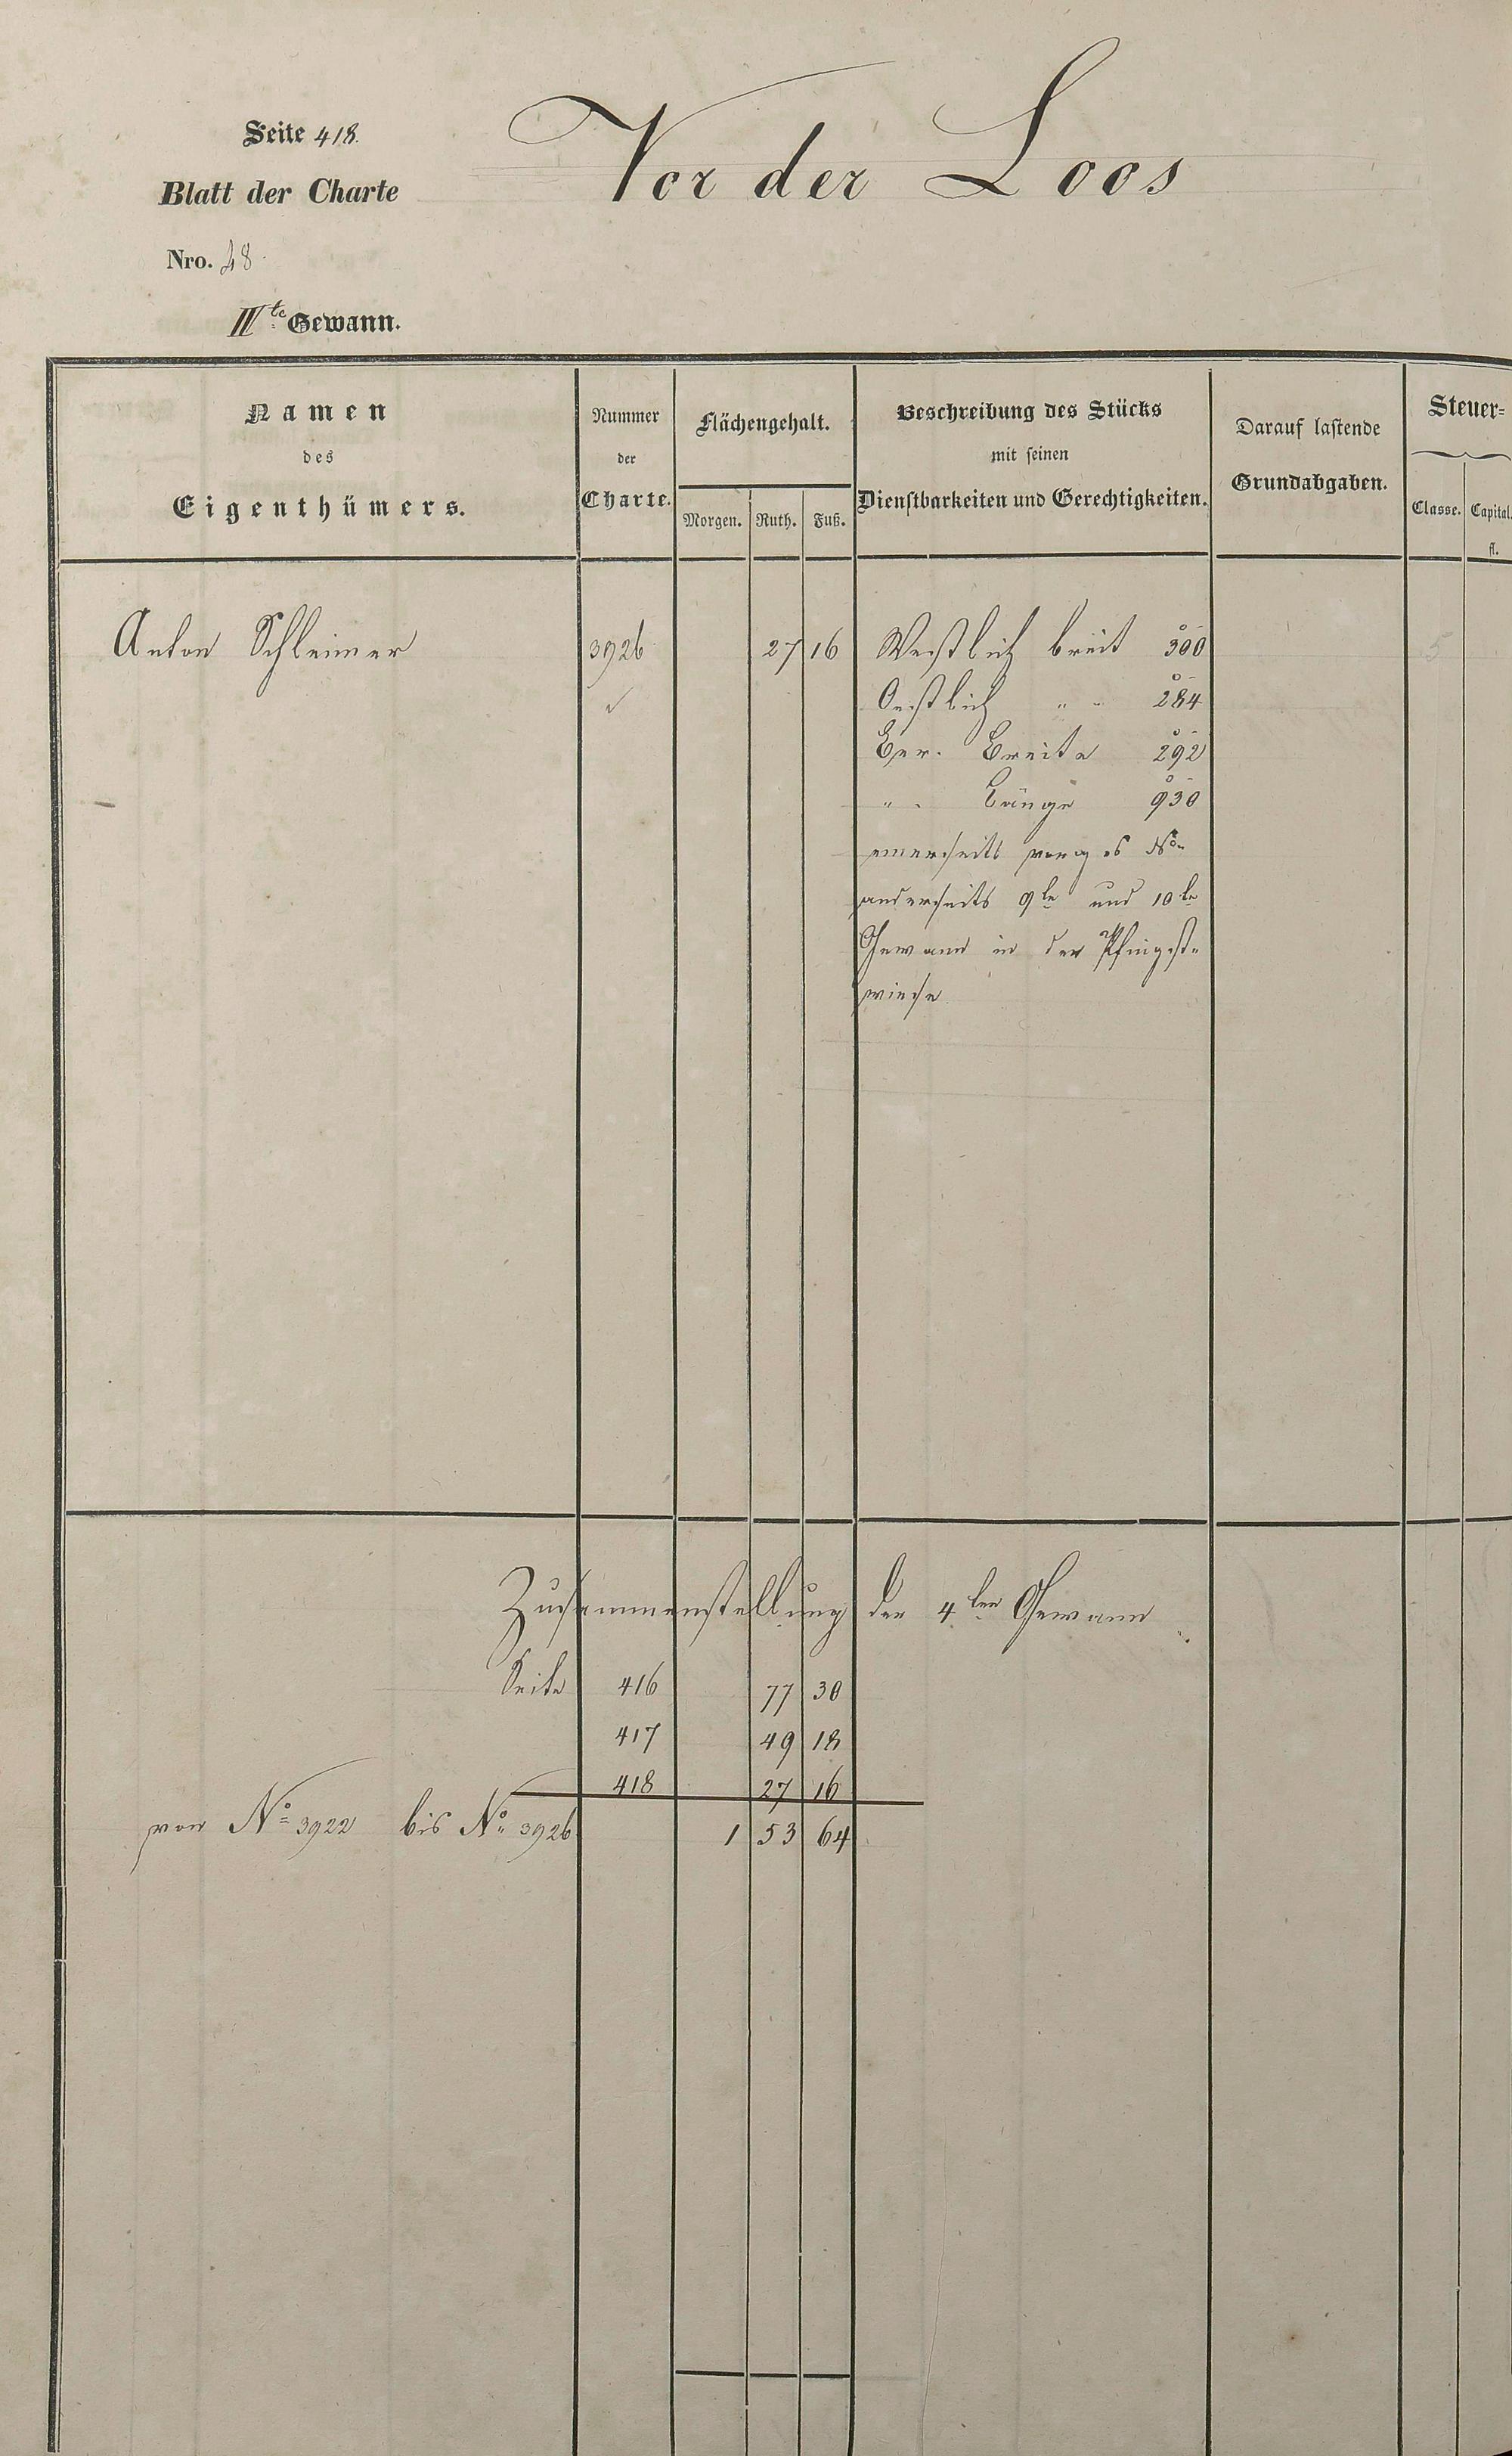 Seite 418.
Vor der Loos
Blatt der Charte
Nro. 48
IVte Gewann.
Namen
des
Eigenthümers.
Nummer
der
Charte.
Flächengehalt.
Morgen. Ruth. Fuß.
Beschreibung des Stücks
mit seinen
Dienstbarkeiten und Gerechtigkeiten.
Darauf lastende
Grundabgaben.
Steuer=
Classe. Capital.
fl.
Anton Schleimer 3926 27 16 Westlich breit 300 5
Oestlich " " 284
Ger. Breite 292
" " Länge 930
einerseits voriges No
anderseits 9te und 10te
Gewann in der Pfingst=
wiese
Zusammenstellung der 4ten Gewann
Seite 416 77 30
417 49 18
418 27 16
von No 3922 bis No 3926 1 53 64